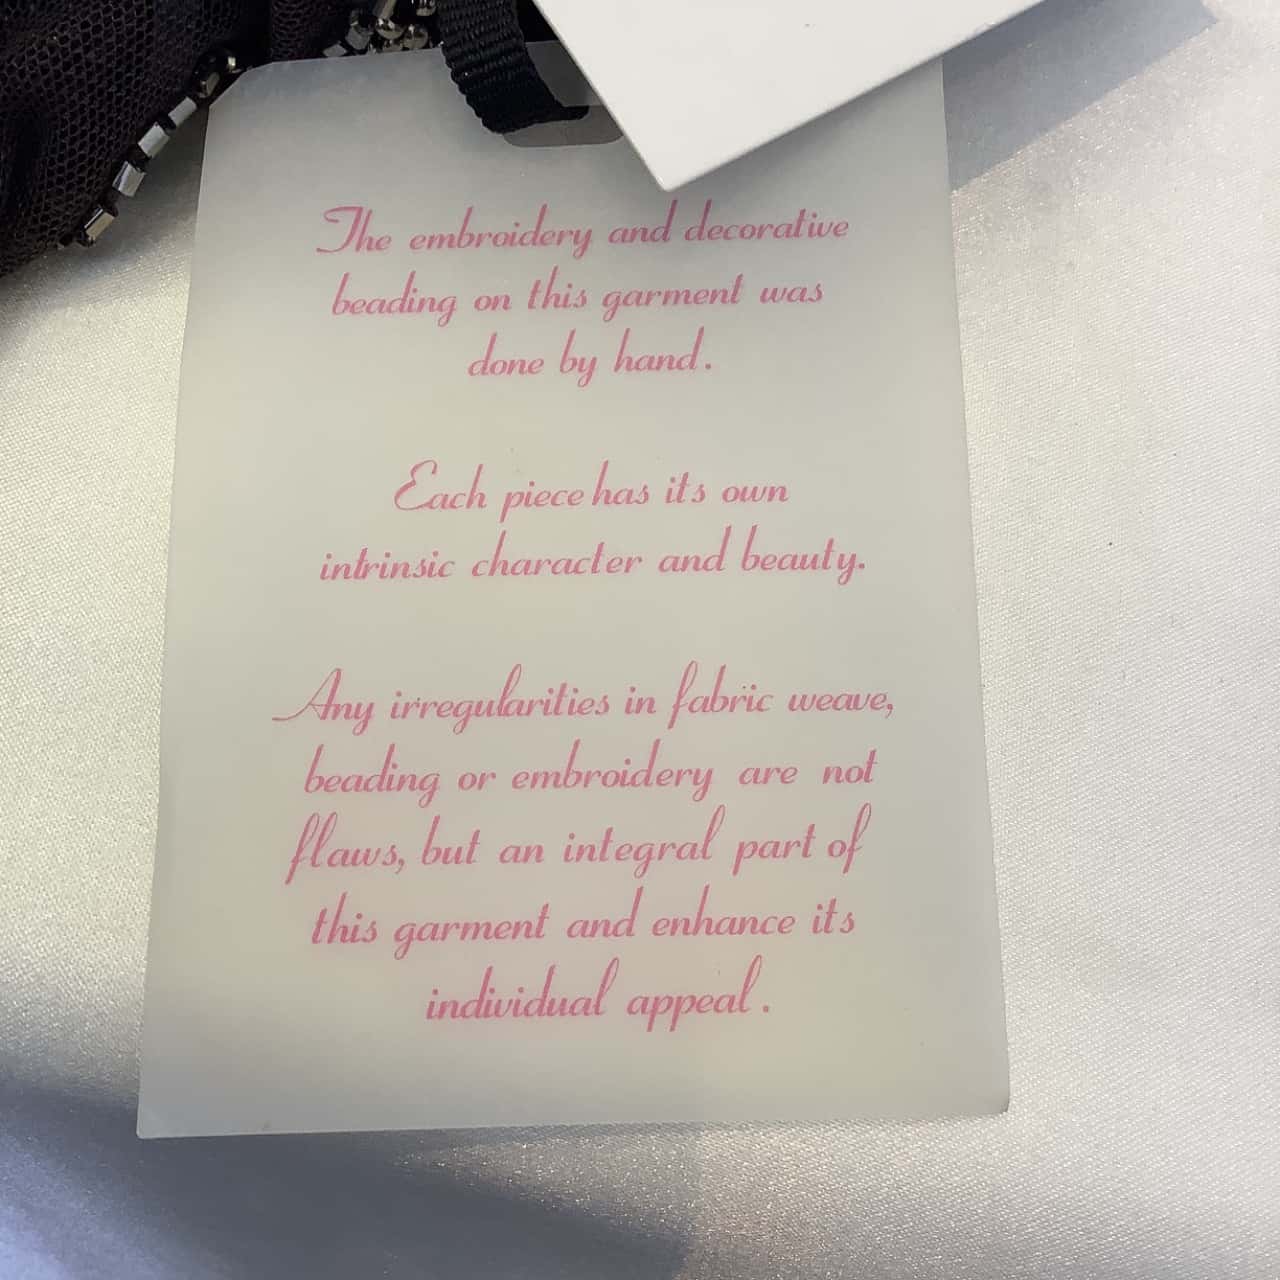 The embroidery and decorative
beading on this garment was
done by hand.
Each piece has its own
intrinsic character and beauty.
Any irregularities in fabric weave,
beading or embroidery are not
flaws, but an integral part of
this garment and enhance its
individual appeal.